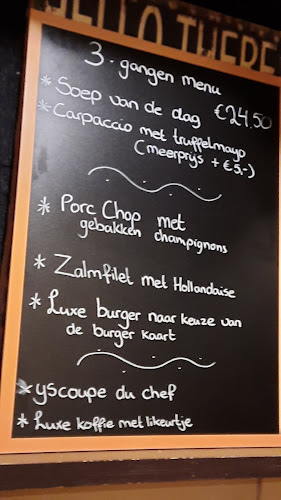 HELLO THERE
3-gangen menu
* Soep van de dag €24,50
* Carpaccio met truffelmayo
(meerprijs + €5,-)
* Porc Chop met
gebakken champignons
* Zalmfilet met Hollandaise
* Luxe burger naar keuze van
de burger kaart
* yscoupe du chef
* Luxe koffie met likeurtje